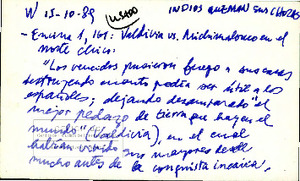 W 15-10-89 USADO INDIOS QUEMAN SUS CHOZAS
- Encina 1, 161: Valdivia vs. Michimalonco en el
norte chico:
"Los vencidos pusieron fuego a sus casas
destruyendo cuanto podía ser útil a los
españoles; dejando desamparado "el
mejor pedazo de tierra que hay en el
mundo" (Valdivia), en el cual
habían vivido sus mayores desde
mucho antes de la conquista incaica.